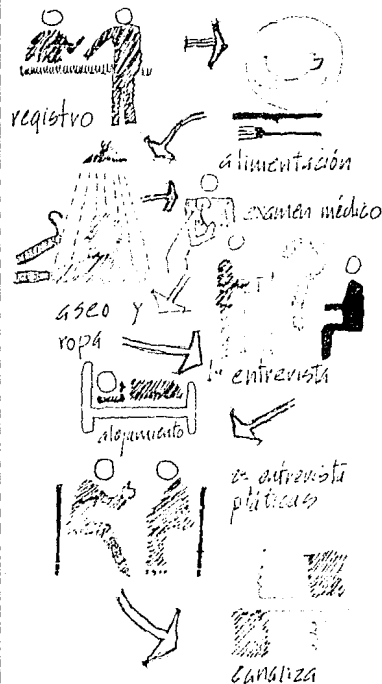 registro
alimentación
examen médico
aseo y
ropa
1ª entrevista
alojamiento
2ª entrevista
pláticas
canaliza